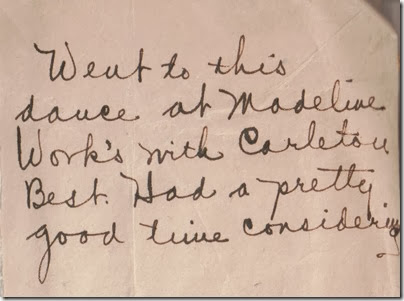 Went to this
dance at Madeline
Work's with Carleton
Best. Had a pretty
good time considering